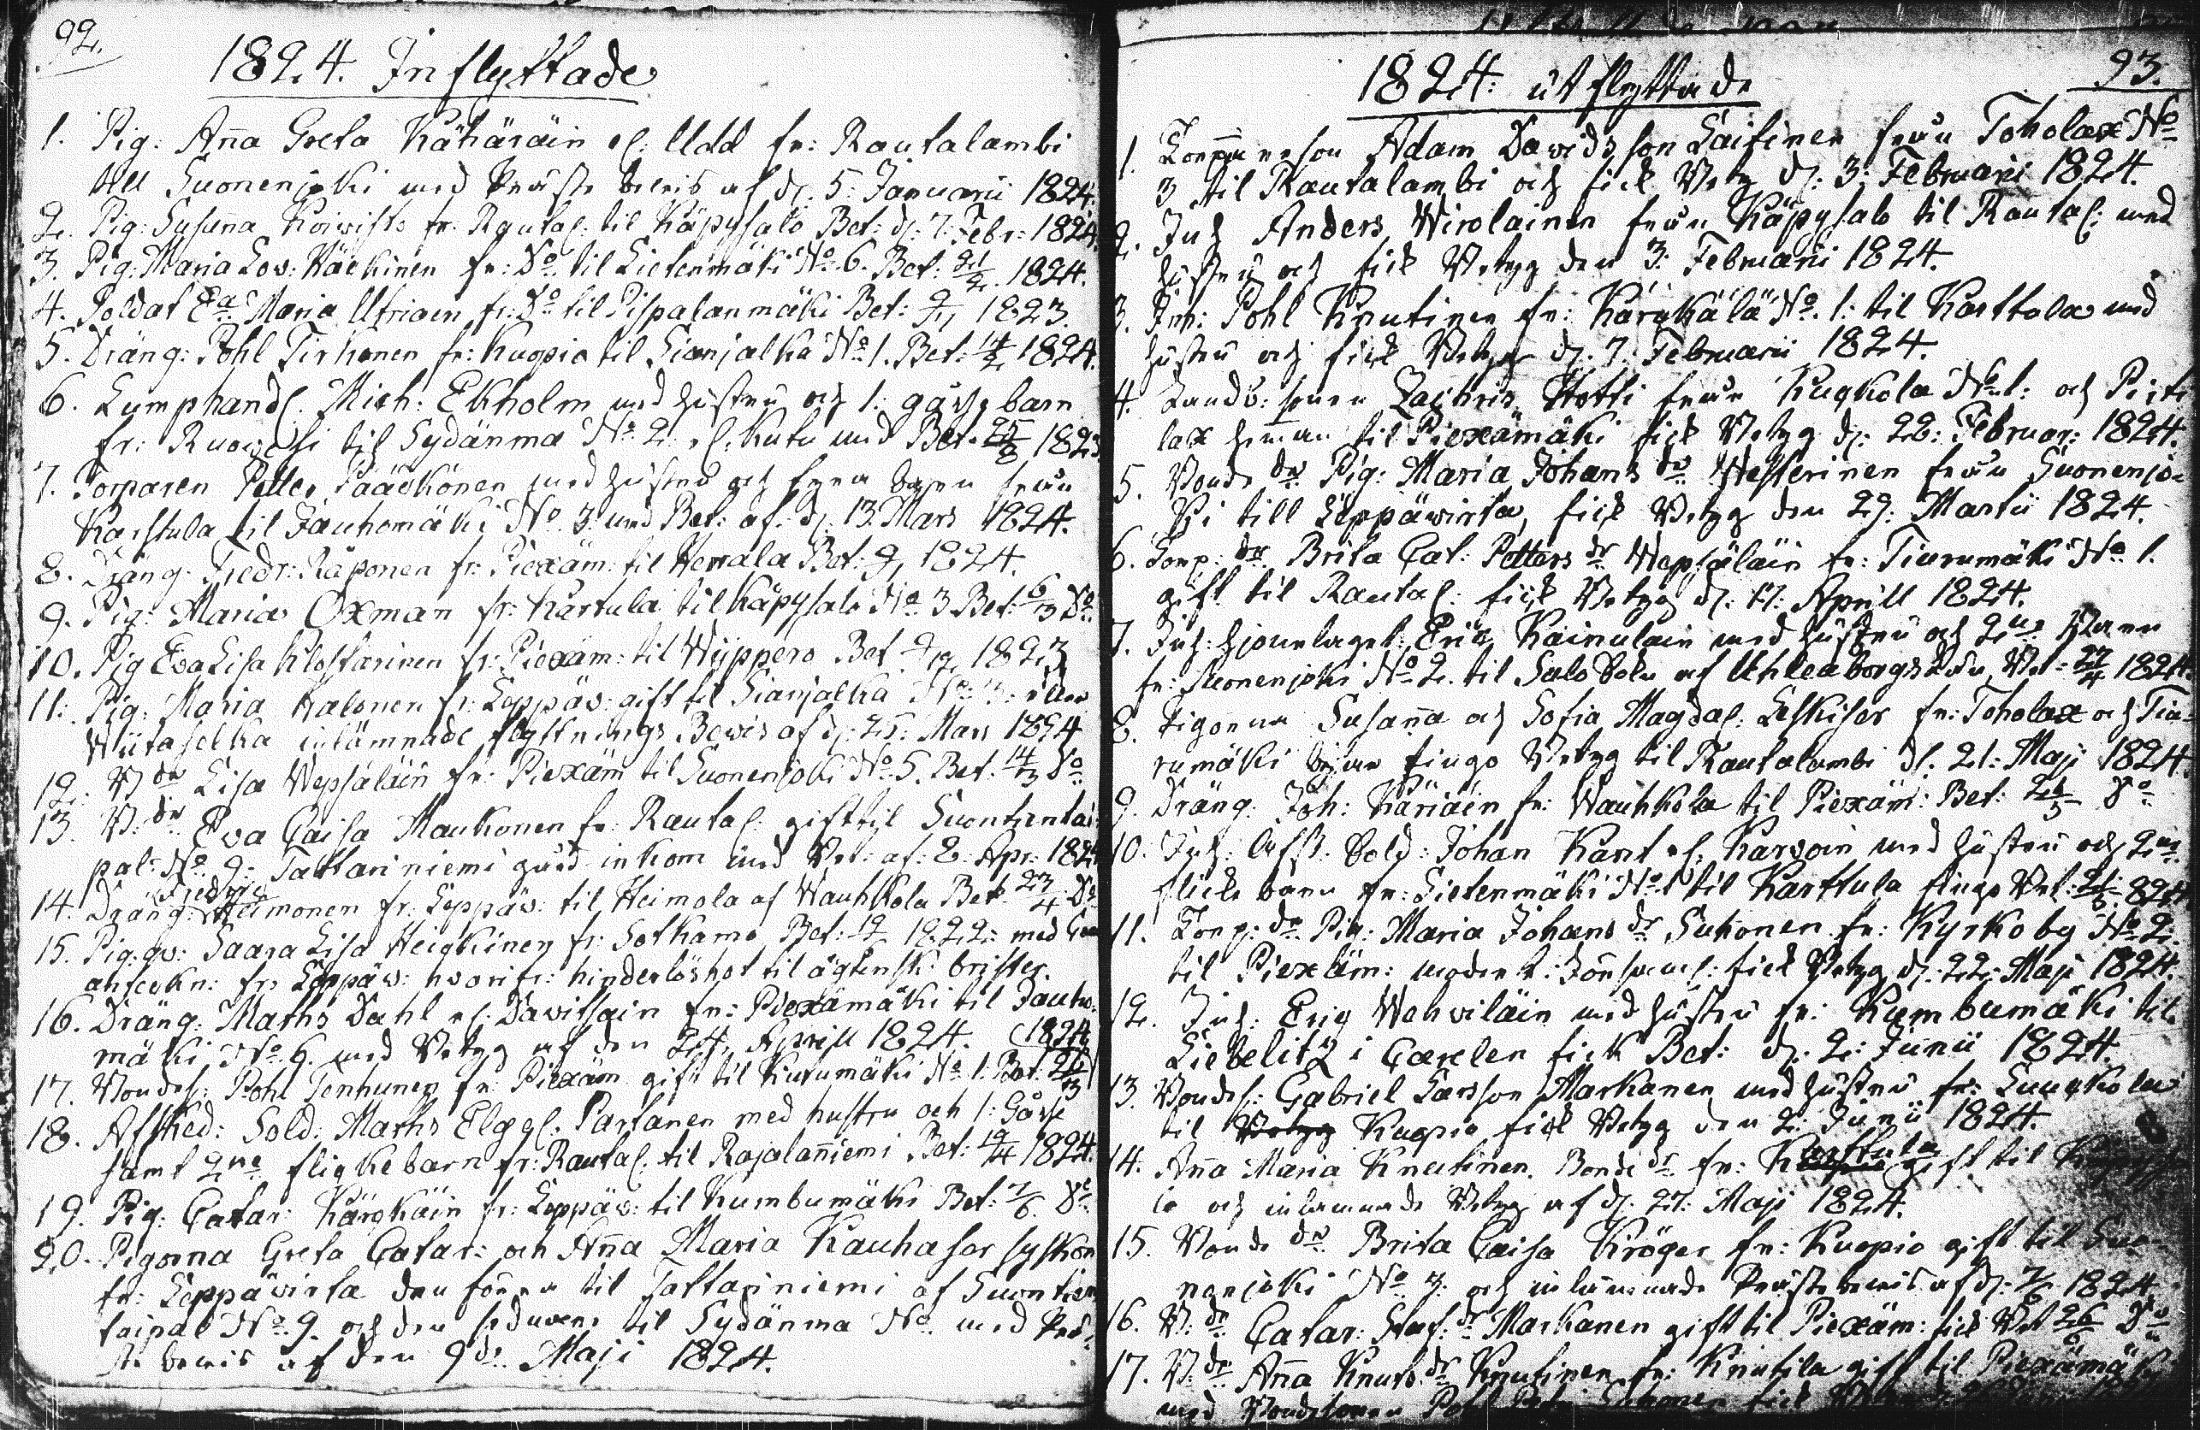 92.
1824. Inflyttade
1. Pig: Aña Greta Kähäräin el: Udd fr: Rautalambi
till Suonenjoki med Präste bevis af d: 5: Januarii 1824.
2. Pig: Susaña Koivisto fr: Rautal: til Käpysalo Bet: d: 7: Febr: 1824.
3. Pig: Maria Lov: Häckinen fr: Do til Lietenmäki No 6. Bet: 21/2 1824.
4. Soldat Ea Maria Utriaen fr: Do til Pispalanmäki Bet: 1823
5. Dräng: Pohl Tirkonen fr: Kuopio til Sianjalka No 1. Bet: 14/2 1824.
6. Lumphandl. Mich: Ekholm med hustru och 1: gåsse barn
fr: Ruovesi til Sydänma No 2. el: Kutu med Bet: 25/8 1823
7. Torparen Petter Pääskönen med hustru och barn från
Karstula til Jauhomäki No 3: med Bet: af d: 13 Mars 1824.
8. Dräng: Fredr: Räponen fr: Piexäm: til Herrala Bet: 1824.
9. Pig: Maria Oxman fr: Kartula til Käpysalo No 3 Bet: 6/3 Do
10. Pig Eva Lisa Klostarinen fr: Piexäm: til Wiippero Bet 1823
11: Pig: Maria Halonen fr: Leppäv: gift til Sianjalka No
Wiitaselka inlämnade flyttnings Bevis af d: 25: Mars 1824
12: B dr Lisa Wepsäläin fr: Piexäm til Suonenjoki No 5. Bet: 14/3 Do
13. B: dr Eva Caisa Maukonen fr: Rautal: gift til Suontientai
pal: No 9: Tattariniemi gård inkom med Bet: af: 2: Apr: 1824
14. Dräng: Fredric Heimonen fr: Leppäv: til Heimola af Wauhkola Bet: 23/4 Do
15. Pig: qv: Saara Lisa Heigkinen fr: Sotkamo Bet: 1822: med
ansekn: fr: Leppäv: hvarifr: hinderlöshet til ägtensk: brister.
16. Dräng: Maths Dahl el: Davitsain fr: Piexämäki til Jauho-
mäki No 6. med Betyg af den 24. Aprill 1824.
17. Bondes: Pohl Tenhunen fr: Piexäm gift til Kutumäki No 1. Bet: 26/3 1824
18. Afsked: Sold: Maths Elg el: Partanen med hustru och 1: Gåsse
samt 2ne fligkebarn fr: Rautal: til Rajalañiemi Bet: 19/4 1824.
19. Pig: Catar: Kärgkäin fr: Leppäv: til Kumbumäki Bet: 7/6 Do
20. Pigorna Greta Catar: och Aña Maria Kauhasar syskon
fr: Leppävirta den förra til Tattariniemi af Suontien
taipal No 9. och den sednare til Sydänma No med Prä-
ste bevis af den 9de Maji 1824.
93.
1824: utflyttade
1. Adam Davidsson Laitinen från Toholax No
3 til Rautalambi och fick Betyg d: 3: Februarii 1824.
2. Inh Anders Wirolainen från Käpysalo til Rautal: med
hustru och fick Betyg den 3: Februarii 1824.
3. Inh: Pohl Knutinen fr: Kärgkälä No. 1: til Karttula med
hustru och fick Betyg d: 7: Februarii 1824.
4. Landb: sonen Zachris Hotti från Kugkola No 1: och
lax heman til Piexämäki fick Betyg d: 22: Februar: 1824.
5. Bonde dr Pig: Maria Johans dr Westerinen från Suonenjo-
ki till Leppäwirta, fick Betyg den 29: Martii 1824.
6. Torp: dr Brita Cat: Petters dr Wepsäläin fr: Tiurumäki No 1.
gift til Rautal: fick Betyg d: 17: Aprill 1824.
7. Inh: hjonelaget: Eric Kainulain med hustru och 2ne Barn
fr: Suonenjoki No 2. til Salo Sokn af Uhleåborgs Län, Bet: 27/4 1824.
8. Pigorna Susaña och Sofia Magdal: Leskisar fr: Toholax och Tiu-
rumäki fingo Betyg til Rautalambi d: 21: Maji 1824.
9. Dräng: Joh: Käriäin fr: Wauhkola til Piexäm: Bet: 21/5 Do
10. Inh: Afsk: Sold: Johan Kant el: Karvoin med hustru och 2ne
flicke barn fr: Lietenmäki No 1 til Karttula fingo Bet: 824
11. Torp: dr Pig: Maria Johans dr Suhonen fr: Kyrkoby No 2:
til Piexäm: fick Betyg d: 22: Maji 1824.
12. Inh: Eric Wahviläin med hustru fr: Kumbumäki til
Liebelitz i Carelen fick Bet: d: 2: Junii 1824.
13. Bondes: Gabriel Larsson Markanen med hustru fr:
til Kuopio fick Betyg den 2: Junii 1824.
14. Aña Maria Knutinen. Bonde dr fr: Karttula gift til
la och inlämnade Betyg af d: 27: Maji 1824.
15. Bonde dr Brita Caisa Kröger fr: Kuopio gift til Suo-
nenjoki No 7. och inlämnade Präste bevis af d: 7/6 1824.
16. B: dr Catar: Staf: dr Markanen gift til Piexäm: fick Bet 26/6 Do
17. B: dr Aña Knuts dr Knutinen fr: Knutila gift til Piexämäki
med Bondesonen Pohl Suhonen fick